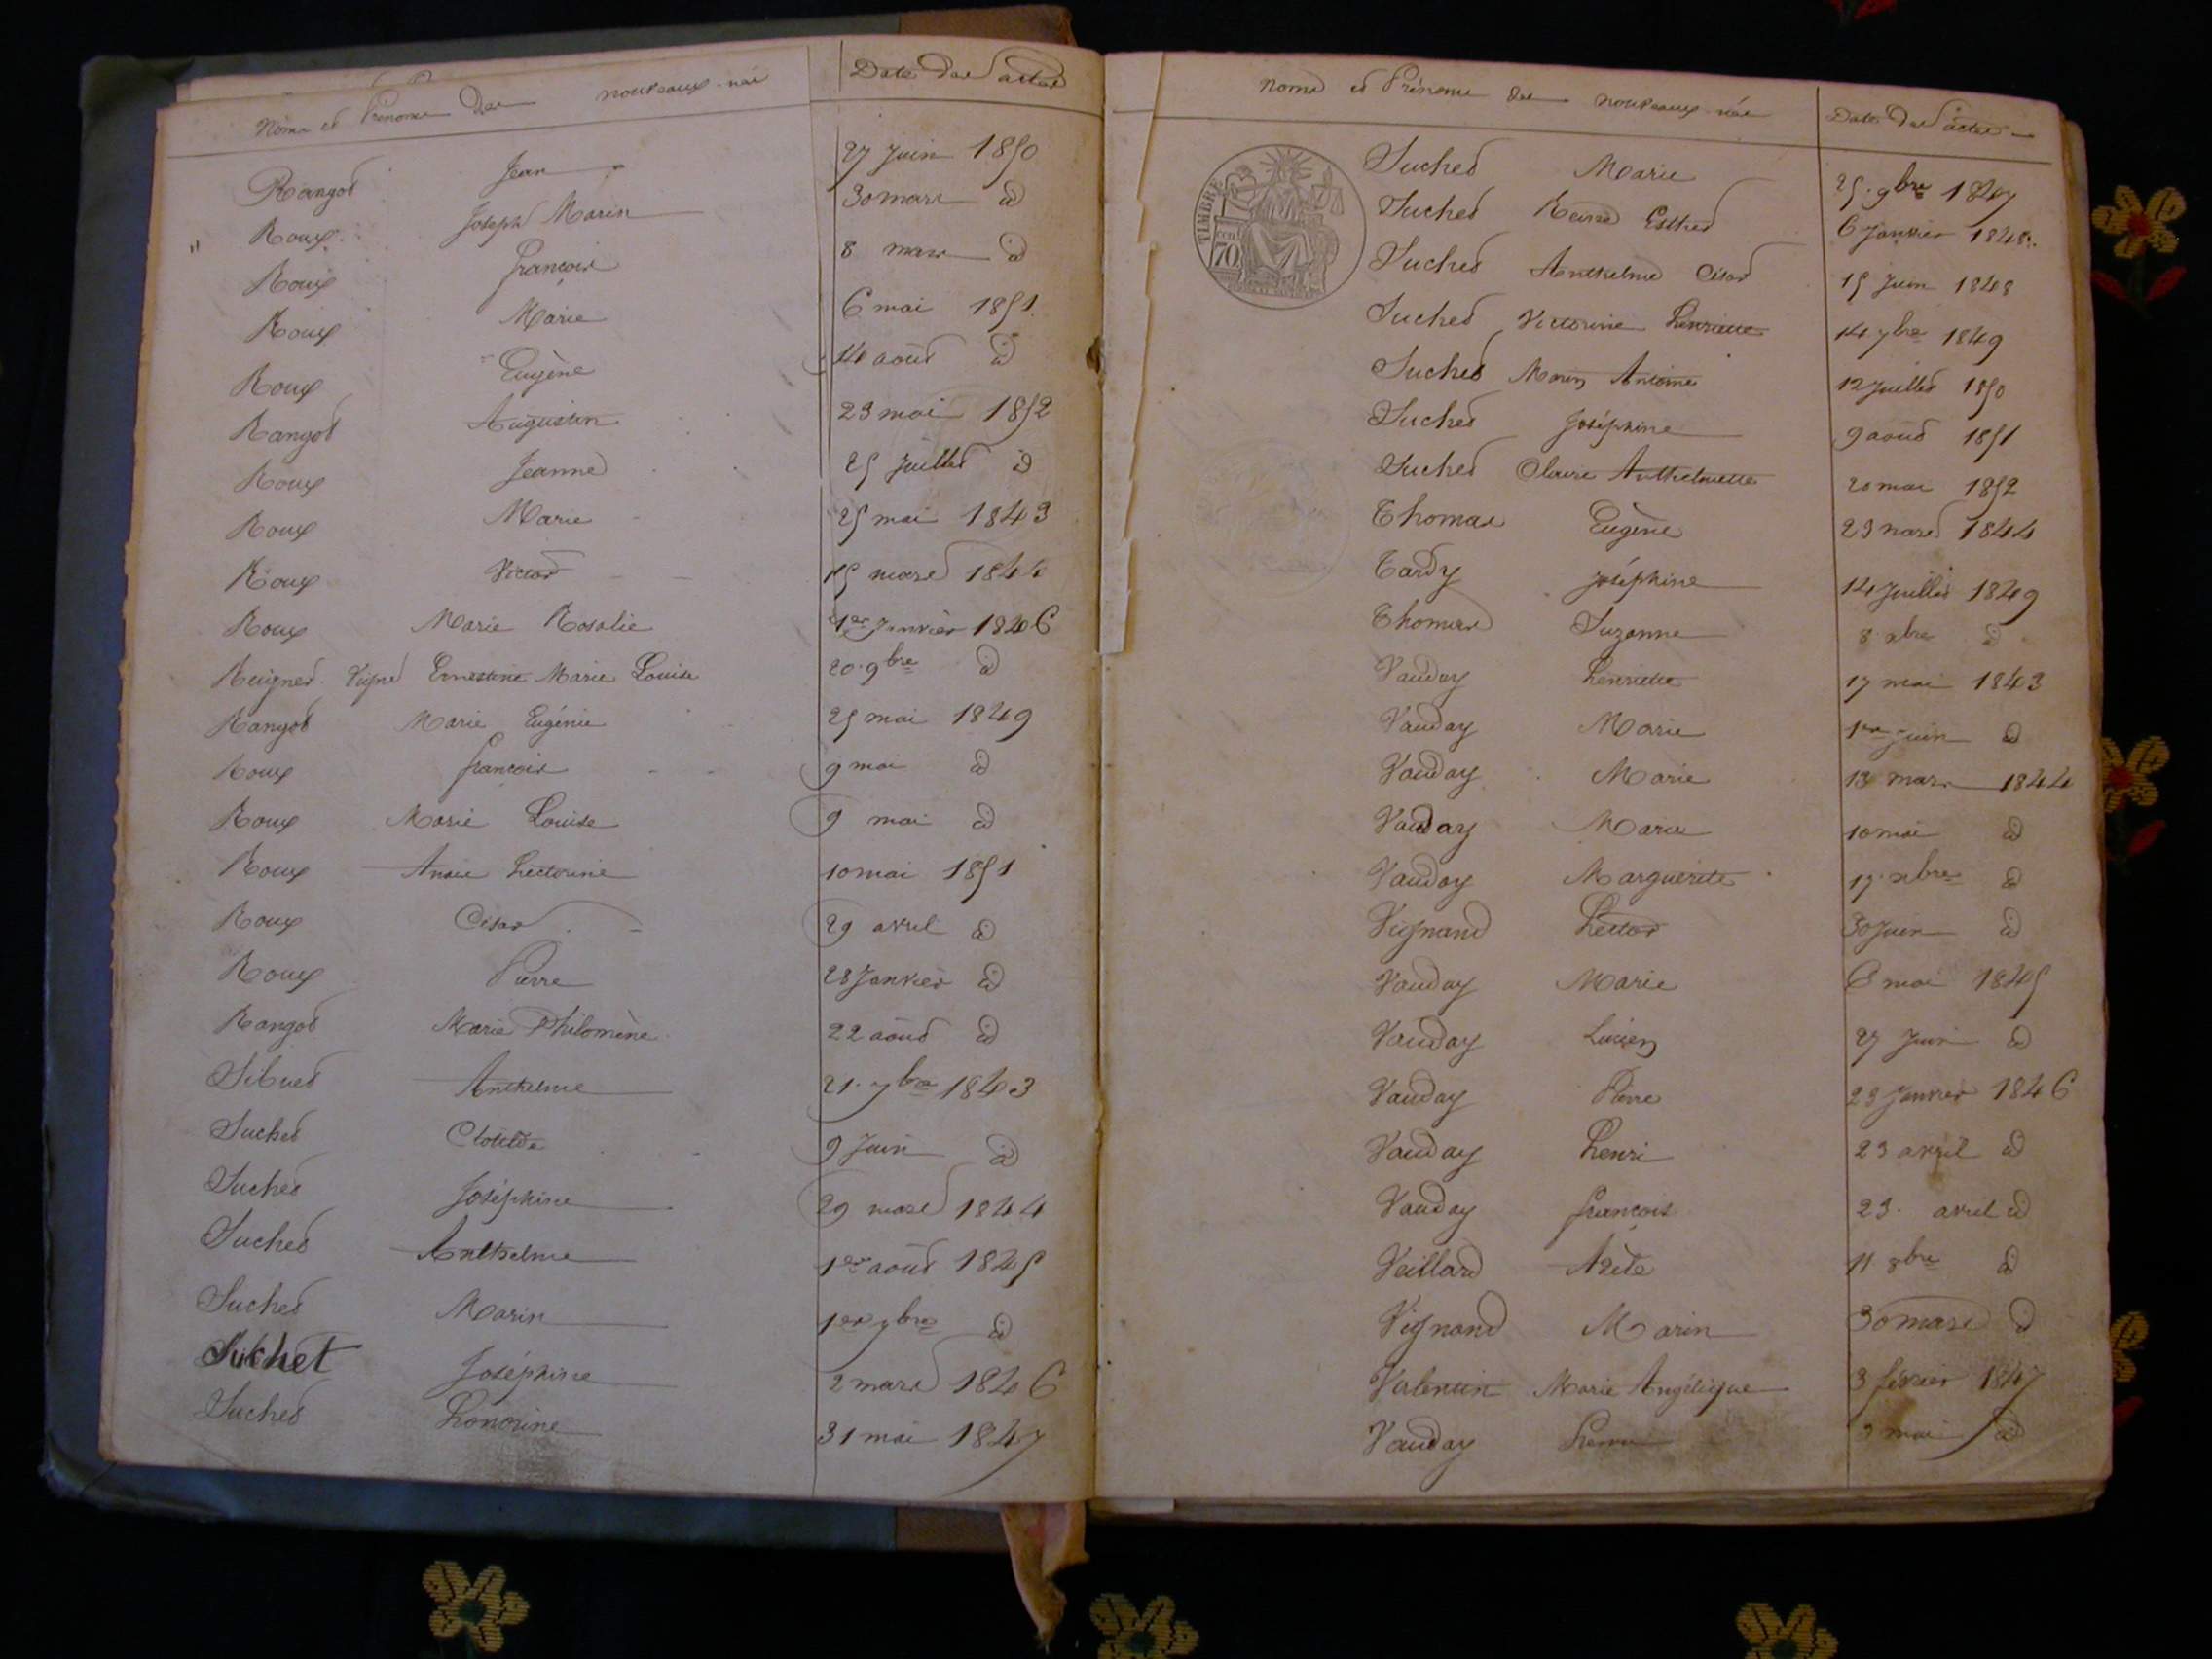 Noms et Prénoms des nouveaux-nés Date des actes
Rangot Jean 27 Juin 1850
Roux Joseph Marin 30 mars id
Roux François 8 mars id
Roux Marie 6 mai 1851
Roux Eugène 14 août id
Rangot Augustin 23 mai 1852
Roux Jeanne 25 Juillet id
Roux Marie 25 mai 1843
Roux Victor 15 mars 1844
Roux Marie Rosalie 1er Janvier 1846
Ernestine Marie Louise 20 9bre id
Rangot Marie Eugénie 25 mai 1849
Roux François 9 mai id
Roux Marie Louise 9 mai id
Roux 10 mai 1851
Roux César 29 avril id
Roux Pierre 28 Janvier id
Rangot Marie Philomène 22 août id
Sibuet Anthelme 21 7bre 1843
Suchet Clotilde 9 Juin id
Suchet Joséphine 29 mars 1844
Suchet Anthelme 1er août 1845
Suchet Marin 1er 7bre id
Suchet Joséphine 2 mars 1846
Suchet Honorine 31 mai 1847
Noms et Prénoms des nouveaux-nés Date des actes
TIMBRE
70
Suchet Marie 25 9bre 1847
Suchet Reine Esther 6 Janvier 1848
Suchet Anthelme César 15 Juin 1848
Suchet Victorine Henriette 14 7bre 1849
Suchet Marin Antoine 12 Juillet 1850
Suchet Joséphine 9 août 1851
Suchet Claire Anthelmette 20 mai 1852
Thomas Eugène 23 mars 1844
Tardy Joséphine 14 Juillet 1849
Thomas Suzanne 8 xbre id
Vauday Henriette 17 mai 1843
Vauday Marie 1er Juin id
Vauday Marie 13 mars 1844
Vauday Marie 10 mai id
Vauday Marguerite 17 xbre id
Vignand Hector 30 Juin id
Vauday Marie 6 mai 1845
Vauday Lucien 27 Juin id
Vauday Pierre 23 Janvier 1846
Vauday Henri 23 avril id
Vauday François 23 avril id
Veillard 11 8bre id
Vignand Marin 30 mars id
Valentin Marie Angélique 3 février 1847
Vauday mai id